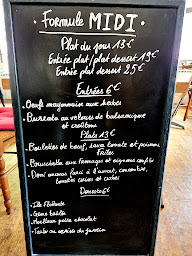 Formule MIDI.
Plat du jour 13€
Entrée plat/plat dessert 19€
Entrée plat dessert 25€
Entrées 6€
- Oeuf mayonnaise aux herbes
- Burrata au velours de balsamique
et croûtons
Plats 13€
- Boulettes de boeuf, sauce tomate et poivrons
Frites
- Bruschetta aux fromages et oignons confits
- Demi ananas farci à l'avocat, concombre,
tomates cerises et
Desserts 6€
- Ile flottante
- Moelleux poire chocolat
- Tarte au cerise du jardin